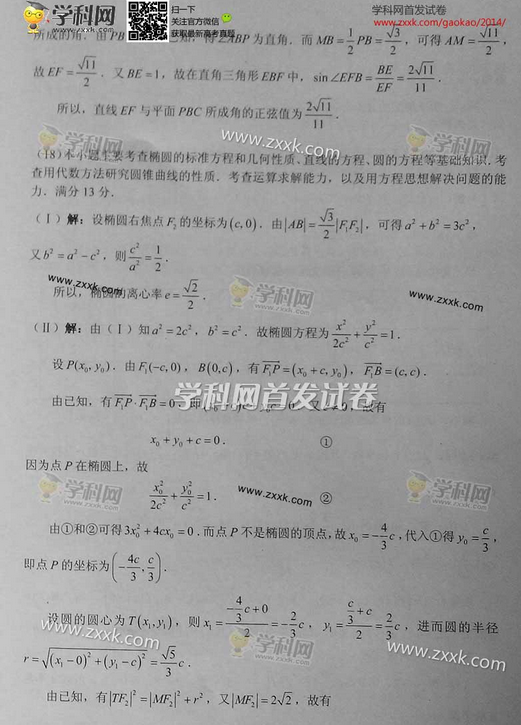 学科网
www.zxxk.com
扫一扫
关注官方微信
获取最新高考真题
学科网首发试卷
www.zxxk.com/gaokao/2014/
所成的角. 由 PB 得∠ABP 为直角. 而 MB = 1/2 PB = √3/2, 可得 AM = √11/2,
故 EF = √11/2. 又 BE = 1, 故在直角三角形 EBF 中, sin∠EFB = BE/EF = 2√11/11.
所以, 直线 EF 与平面 PBC 所成角的正弦值为 2√11/11.
www.zxxk.com
(18) 本小题主要考查椭圆的标准方程和几何性质、直线的方程、圆的方程等基础知识. 考
查用代数方法研究圆锥曲线的性质. 考查运算求解能力, 以及用方程思想解决问题的能
力. 满分 13 分.
(Ⅰ) 解: 设椭圆右焦点 F₂ 的坐标为 (c, 0). 由 |AB| = √3/2 |F₁F₂|, 可得 a² + b² = 3c²,
又 b² = a² − c², 则 c²/a² = 1/2.
www.zxxk.com
学科网
www.zxxk.com
所以, 椭圆的离心率 e = √2/2.
(Ⅱ) 解: 由 (Ⅰ) 知 a² = 2c², b² = c². 故椭圆方程为 x²/2c² + y²/c² = 1.
设 P(x₀, y₀). 由 F₁(−c, 0), B(0, c), 有 F₁P = (x₀ + c, y₀), F₁B = (c, c).
学科网首发试卷
由已知, 有 F₁P · F₁B = 0, 即 c = 0. 又 c ≠ 0, 故有
x₀ + y₀ + c = 0. ①
因为点 P 在椭圆上, 故
学科网
www.zxxk.com
学科网
x₀²/2c² + y₀²/c² = 1. ②
由①和②可得 3x₀² + 4cx₀ = 0. 而点 P 不是椭圆的顶点, 故 x₀ = −4/3 c, 代入①得 y₀ = c/3,
即点 P 的坐标为 (−4c/3, c/3).
设圆的圆心为 T(x₁, y₁), 则 x₁ = (−4/3 c + 0)/2 = −2/3 c, y₁ = (c/3 + c)/2 = 2/3 c, 进而圆的半径
www.zxxk.com
学科网
www.zxxk.com
r = √((x₁ − 0)² + (y₁ − c)²) = √5/3 c.
由已知, 有 |TF₂|² = |MF₂|² + r², 又 |MF₂| = 2√2, 故有